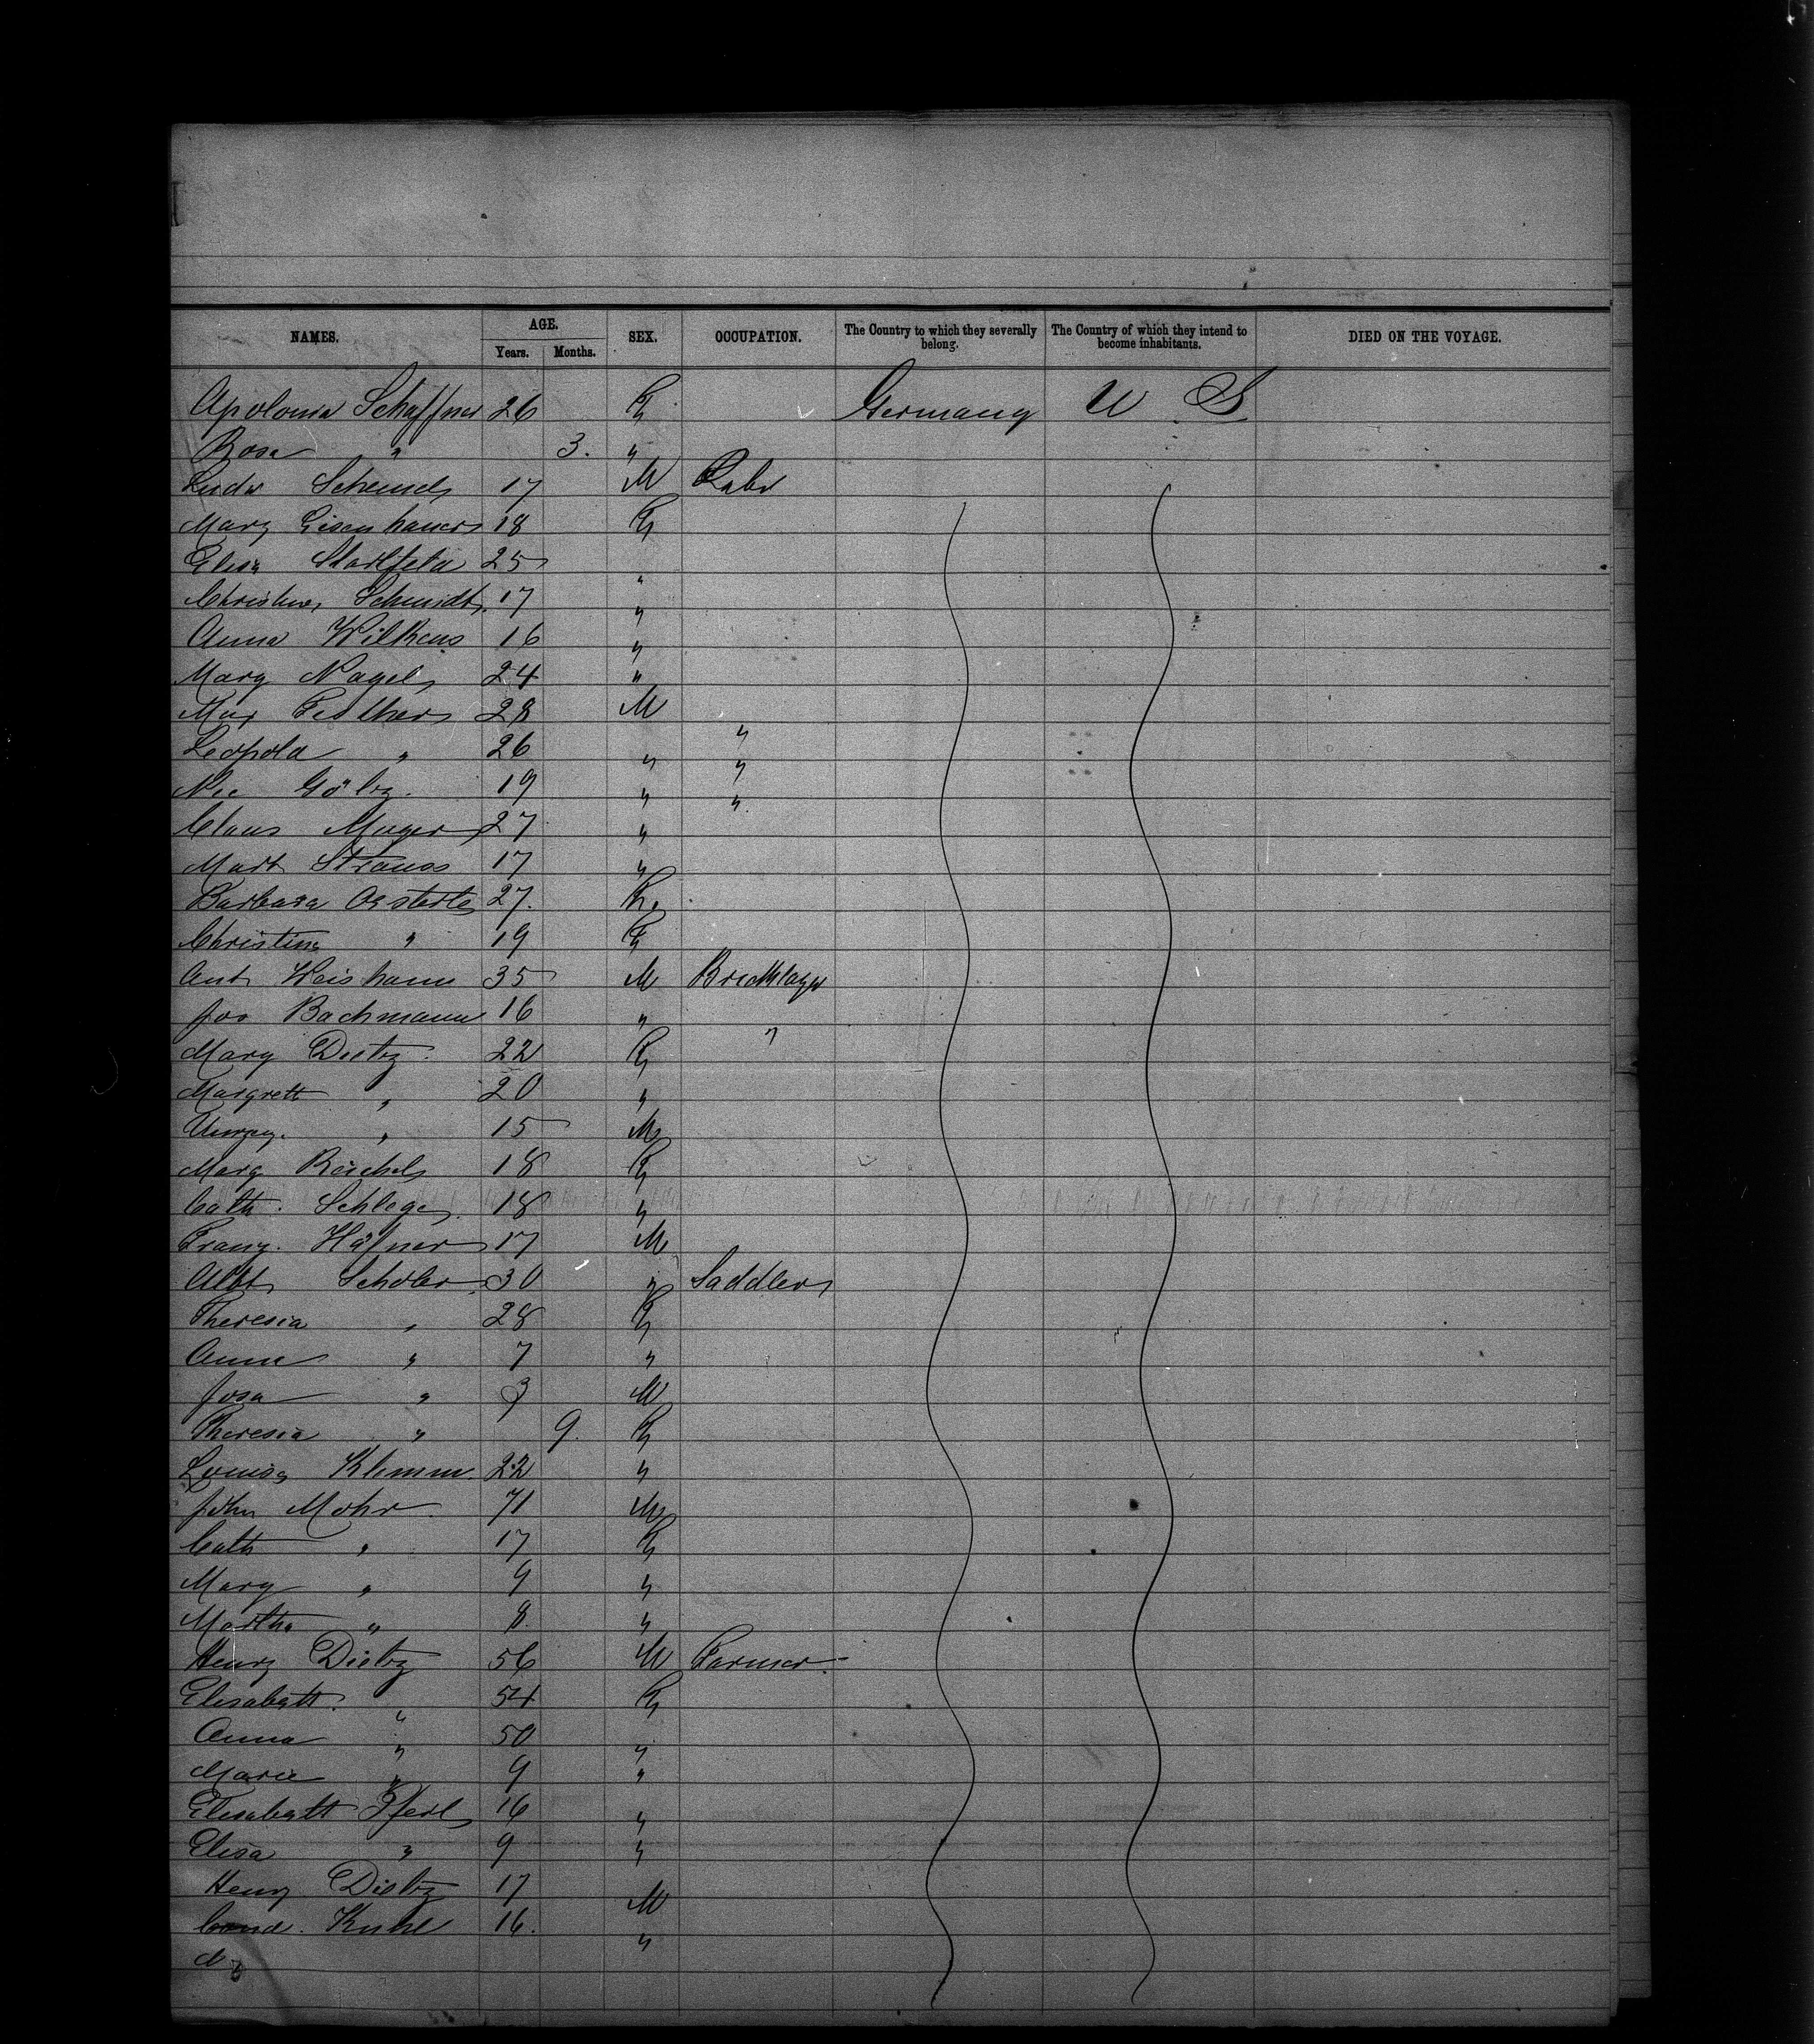 NAMES. AGE. SEX. OCCUPATION. The Country to which they severally belong. The Country of which they intend to become inhabitants. DIED ON THE VOYAGE.
Years. Months.
Apolonia Schaffner 26 F Germany U S
Rosa " 3. "
Ludw Schmidt 17 M Labr
Mary Eisenhauer 18 F
Elisa 25 "
Christine Schmidt 17 "
Anna Wilkens 16 "
Mary Nagel 24 "
Max 28 M "
Leopold " 26 " "
Nic Göltz 19 " "
Claus Meyer 27 "
Mart Strauss 17 "
Barbara Oesterle 27. F.
Christine " 19 F
Ant 35 M Bricklayer
Jos Bachmann 16 " "
Mary Dietz 22 F
Margreth " 20 "
" 15 M
Marg Reichel 18 F
Cath. Schlegel 18 "
Franz. Häfner 17 M
Albt Schober 30 " Saddler
Theresia " 28 F
Anna " 7 "
Josa " 3 M
Theresia " 9. F
Louisa Klemm 22 "
John Mohr 71 M
Cath " 17 F
Mary " 9 "
Martha " 8 "
Henry Dietz 56 M Farmer
Elisabeth " 54 F
Anna " 50 "
Marie " 9 "
Elisabeth 16 "
Elisa " 9 "
Henry Dietz 17 M
16. "